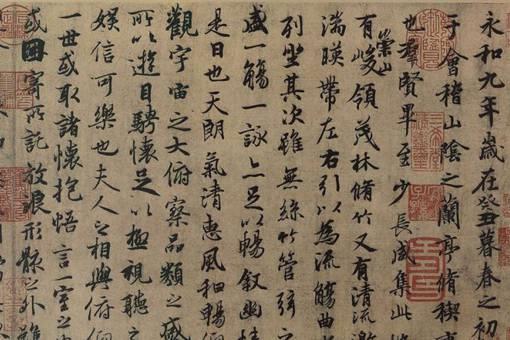 永和九年歲在癸丑暮春之初
于會稽山陰之蘭亭脩稧事
也羣賢畢至少長咸集此地
有崇山峻領茂林脩竹又有清流激
湍暎帶左右引以為流觴曲
列坐其次雖無絲竹管弦之
盛一觴一詠亦足以暢敘幽情
是日也天朗氣清惠風和暢仰
觀宇宙之大俯察品類之盛
所以遊目騁懷足以極視聽之
娛信可樂也夫人之相與俯仰
一世或取諸懷抱悟言一室之
或因寄所託放浪形骸之外雖